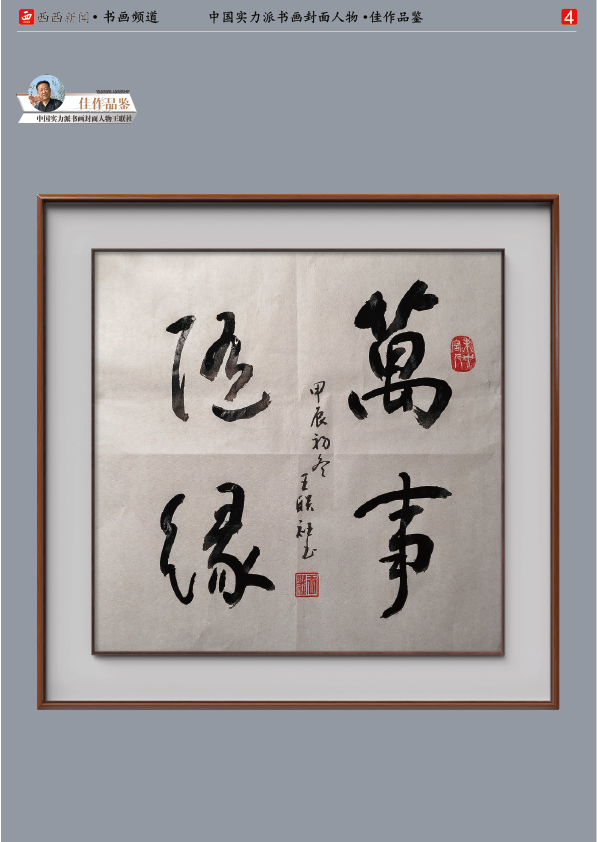 西西新闻·书画频道
中国实力派书画封面人物·佳作品鉴
4
佳作品鉴
中国实力派书画封面人物王联社
萬事
随缘
甲辰初冬
王联社书